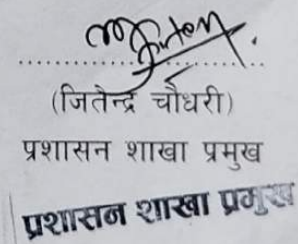 (जितेन्द्र चौधरी)
प्रशासन शाखा प्रमुख
प्रशासन शाखा प्रमुख